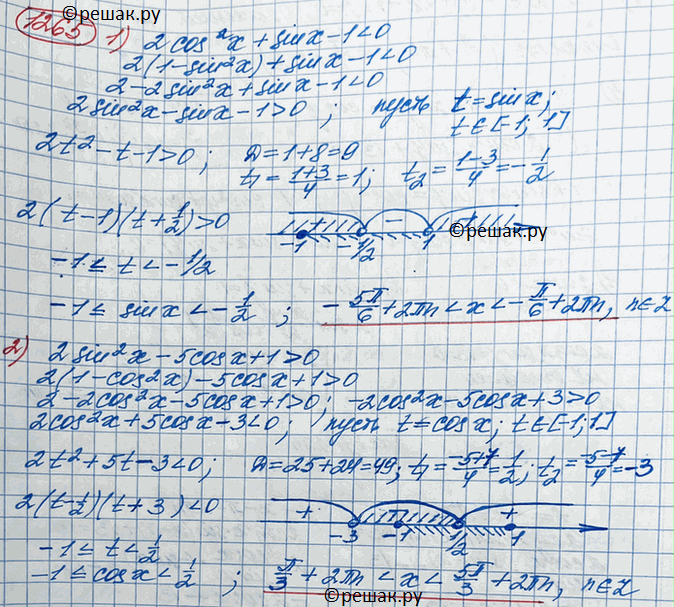 ©решак.ру
1265 1) 2cos²x + sinx - 1 < 0
2(1 - sin²x) + sinx - 1 < 0
2 - 2sin²x + sinx - 1 < 0
2sin²x - sinx - 1 > 0 ; пусть t = sinx;
t ∈ [-1; 1]
2t² - t - 1 > 0 ; D = 1 + 8 = 9
t₁ = (1+3)/4 = 1; t₂ = (1-3)/4 = -1/2
2(t - 1)(t + 1/2) > 0 + - +
-1 -1/2 1 ©решак.ру
-1 ≤ t < -1/2
-1 ≤ sinx < -1/2 ; -5π/6 + 2πn < x < -π/6 + 2πn, n ∈ Z
2) 2sin²x - 5cosx + 1 > 0
2(1 - cos²x) - 5cosx + 1 > 0
2 - 2cos²x - 5cosx + 1 > 0; -2cos²x - 5cosx + 3 > 0
2cos²x + 5cosx - 3 < 0; пусть t = cosx; t ∈ [-1; 1]
2t² + 5t - 3 < 0; D = 25 + 24 = 49; t₁ = (-5+7)/4 = 1/2; t₂ = (-5-7)/4 = -3
2(t - 1/2)(t + 3) < 0 + - +
-3 -1 1/2 1
-1 ≤ t < 1/2
-1 ≤ cosx < 1/2 ; π/3 + 2πn < x < 5π/3 + 2πn, n ∈ Z
©решак.ру